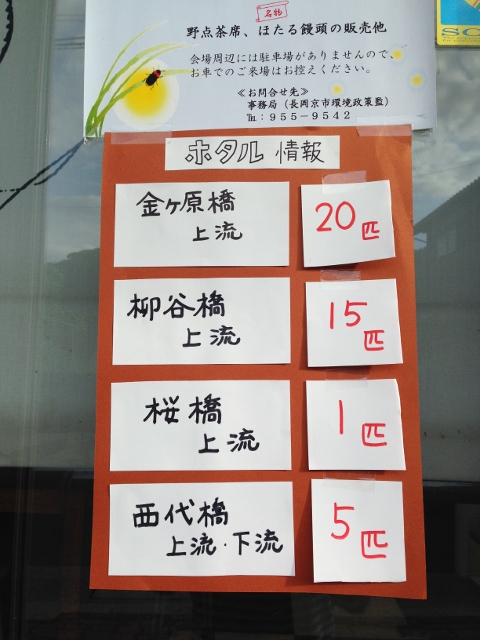 名物
野点茶席、ほたる饅頭の販売他
会場周辺には駐車場がありませんので、
お車でのご来場はお控えください。
≪お問合せ先≫
事務局（長岡京市環境政策監）
℡：955-9542
ホタル 情報
金ヶ原橋
上流
20匹
柳谷橋
上流
15匹
桜橋
上流
1匹
西代橋
上流·下流
5匹